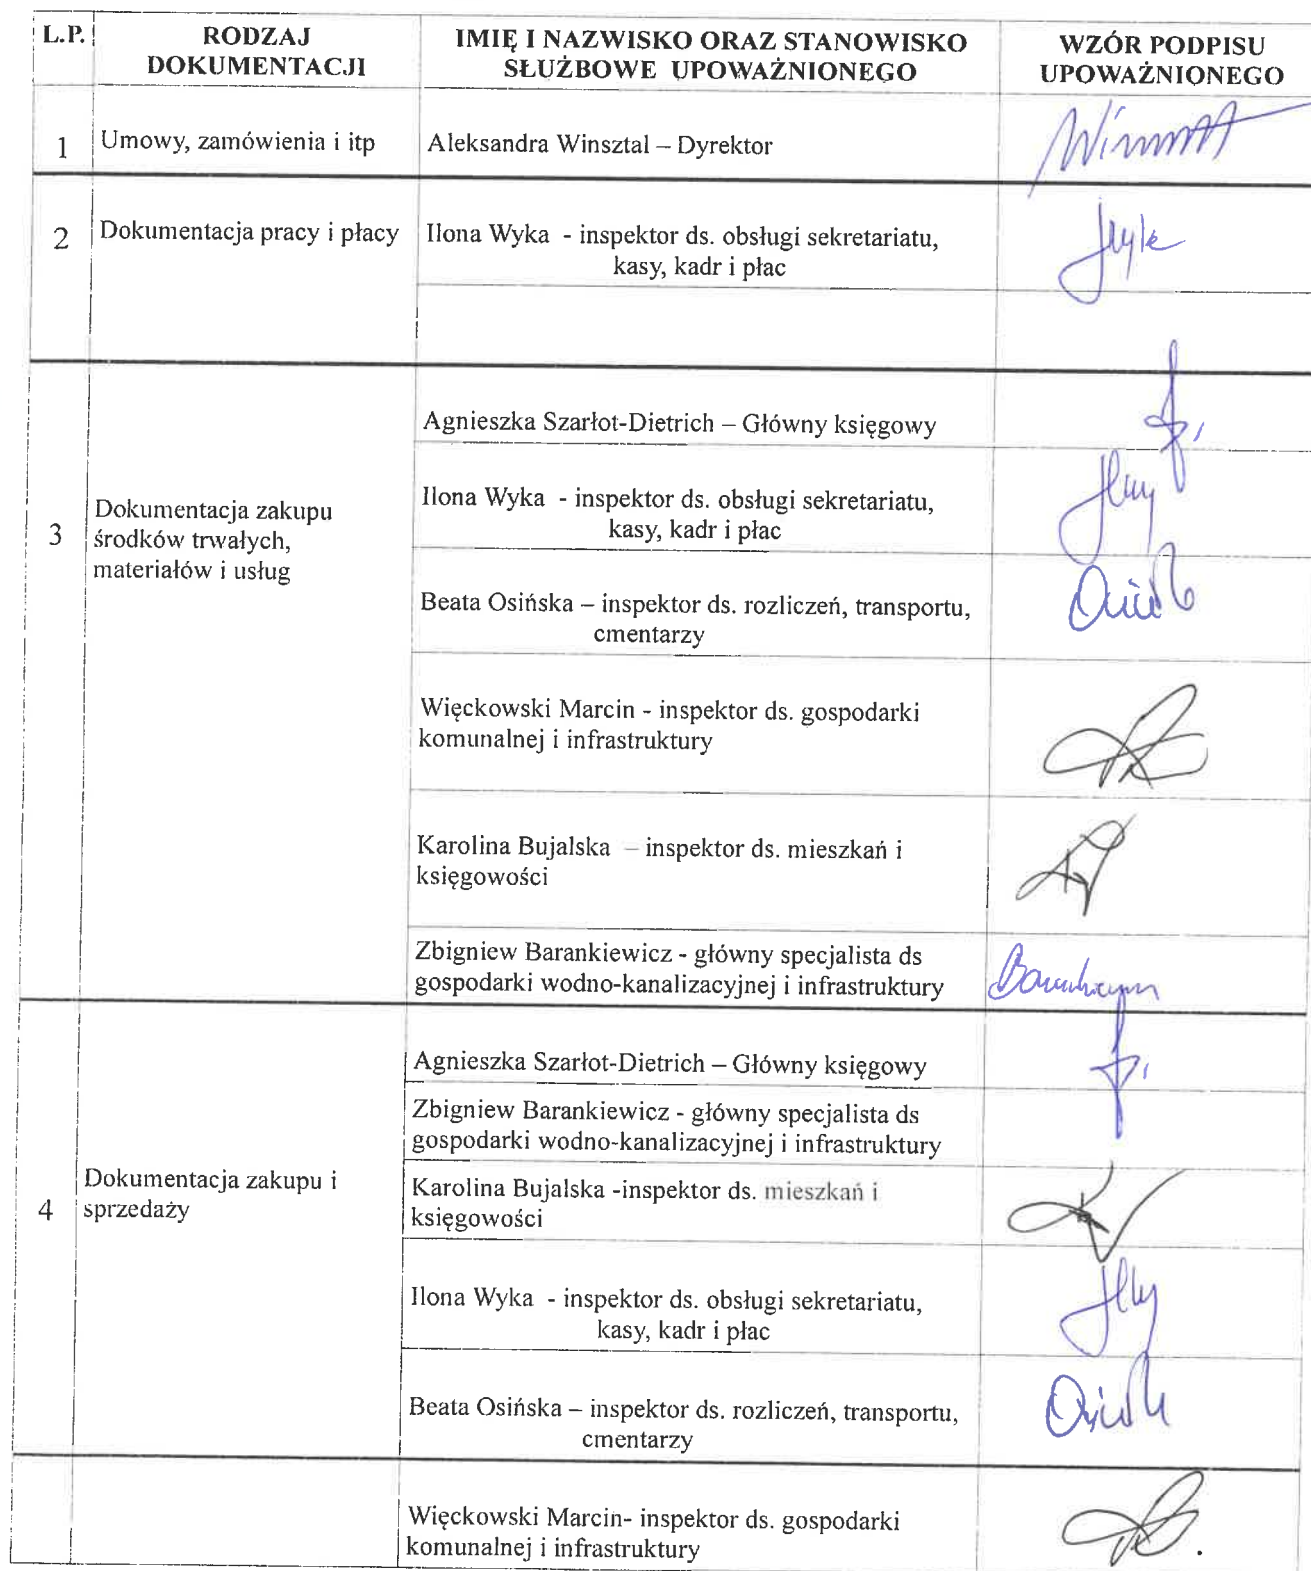 L.P.
RODZAJ
DOKUMENTACJI
IMIĘ I NAZWISKO ORAZ STANOWISKO
SŁUŻBOWE UPOWAŻNIONEGO
WZÓR PODPISU
UPOWAŻNIONEGO
1
Umowy, zamówienia i itp
Aleksandra Winsztal – Dyrektor
2
Dokumentacja pracy i płacy
Ilona Wyka - inspektor ds. obsługi sekretariatu,
kasy, kadr i płac
3
Dokumentacja zakupu
środków trwałych,
materiałów i usług
Agnieszka Szarłot-Dietrich – Główny księgowy
Ilona Wyka - inspektor ds. obsługi sekretariatu,
kasy, kadr i płac
Beata Osińska – inspektor ds. rozliczeń, transportu,
cmentarzy
Więckowski Marcin - inspektor ds. gospodarki
komunalnej i infrastruktury
Karolina Bujalska – inspektor ds. mieszkań i
księgowości
Zbigniew Barankiewicz - główny specjalista ds
gospodarki wodno-kanalizacyjnej i infrastruktury
4
Dokumentacja zakupu i
sprzedaży
Agnieszka Szarłot-Dietrich – Główny księgowy
Zbigniew Barankiewicz - główny specjalista ds
gospodarki wodno-kanalizacyjnej i infrastruktury
Karolina Bujalska -inspektor ds. mieszkań i
księgowości
Ilona Wyka - inspektor ds. obsługi sekretariatu,
kasy, kadr i płac
Beata Osińska – inspektor ds. rozliczeń, transportu,
cmentarzy
Więckowski Marcin- inspektor ds. gospodarki
komunalnej i infrastruktury